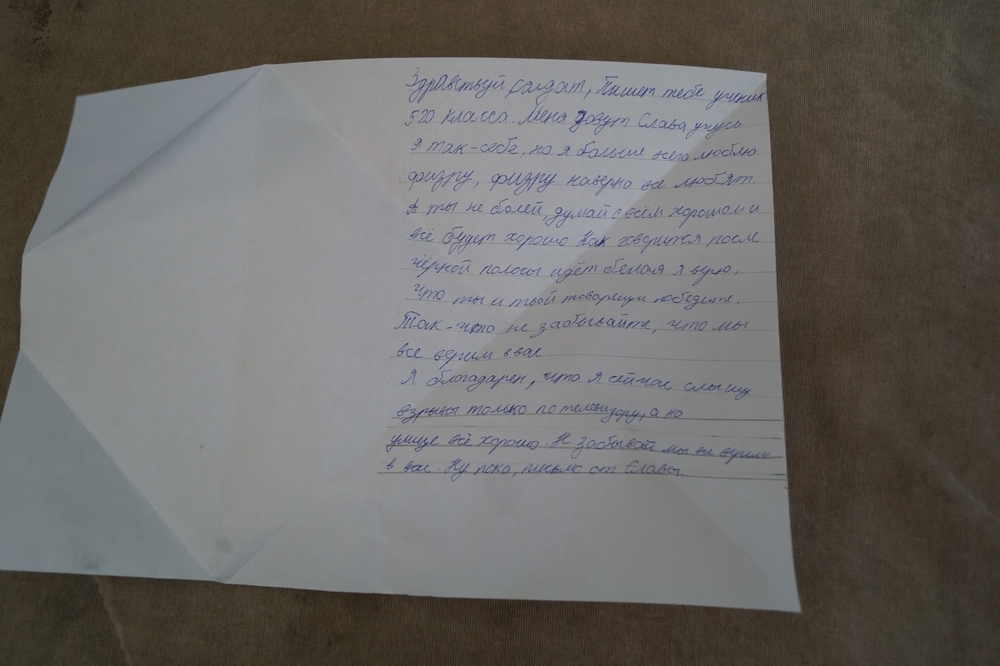 Здравствуй солдат, Пишет тебе ученик
5 класса. Меня зовут Слава учусь
я так-себе, но я больше всего люблю
физру, физру наверно все любят.
А ты не болей, думай о всём хорошом и
всё будет хорошо Как говорится после
чёрной полосы идёт белоя я верю,
что ты и твой товарещи победите.
Так-что не забывайте, что мы
все верим в вас
Я благадарен, что я сейчас слышу
взрывы только по телевизору, а на
улице всё хорошо. Не забывай мы все верим
в вас. Ну пока, письмо от Славы.